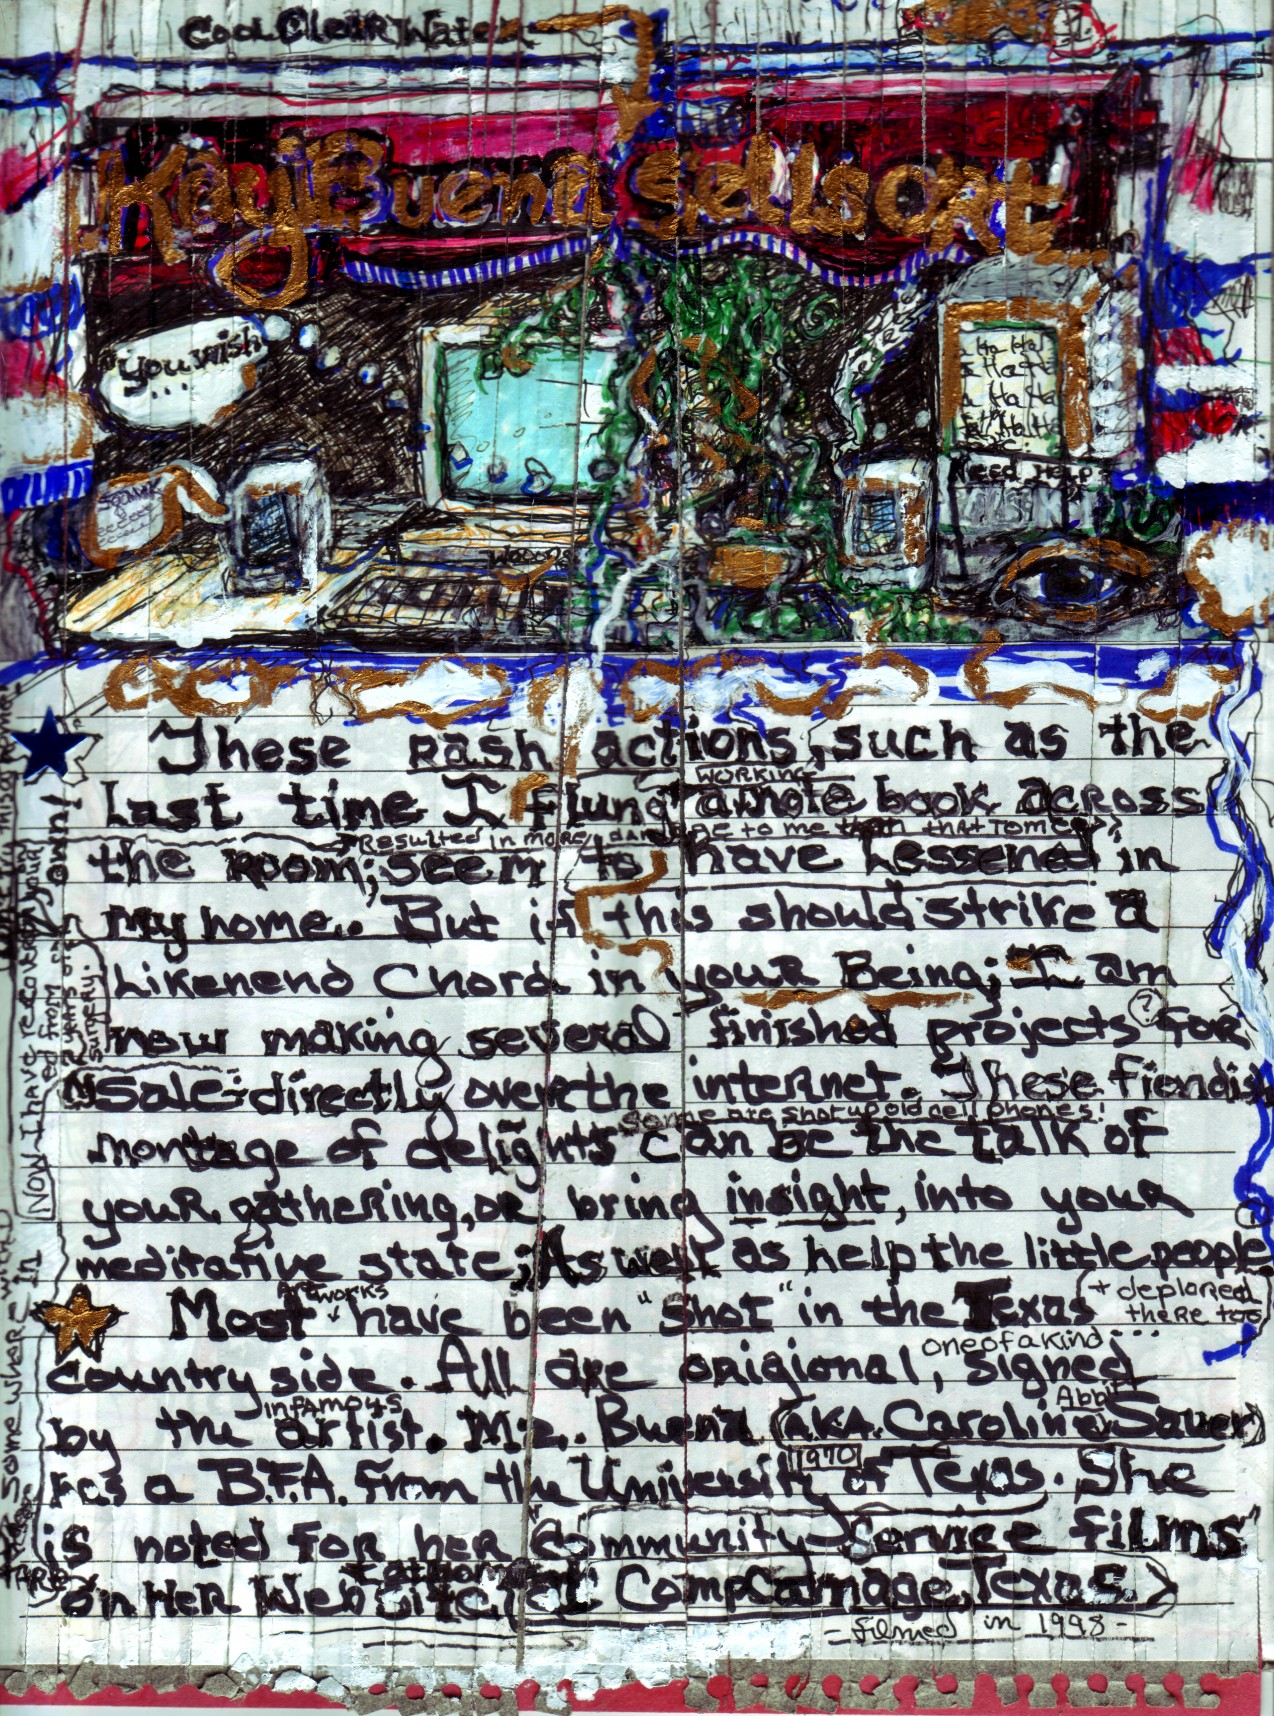 Cool Clear Water
Kay Buena Sells Art
You wish
...
Ha Ha
Ha Ha
Ha Ha
Ha Ha
Need Help?
These rash actions, such as the
working
Last time I flung a note book across
Resulted in more damage to me than that Tome
the room; seem to have Lessened in
my home.. But if this should strike a
Likenend Chord in your Being; I am
now making several finished projects (?) for
Sale - directly over the internet. These fiendish
some are shot up old cell phones!
montage of delights can be the talk of
your gathering, or bring insight, into your
meditative state; As well as help the little people
Artworks
+ deplored
there too
Most have been "shot" in the Texas
one of a kind...
country side. All are origional, signed
infamous
Abbit
by the artist. Mz.. Buena (A.K.A. Caroline Sauer)
1970
has a B.F.A. from the University of Texas. She
is noted for her "Community Service films"
on Her Web Site, at CompCarnage, Texas.
- filmed in 1998 -
Now I have recovered
from
years of
surgery.
your
own!
Some where in